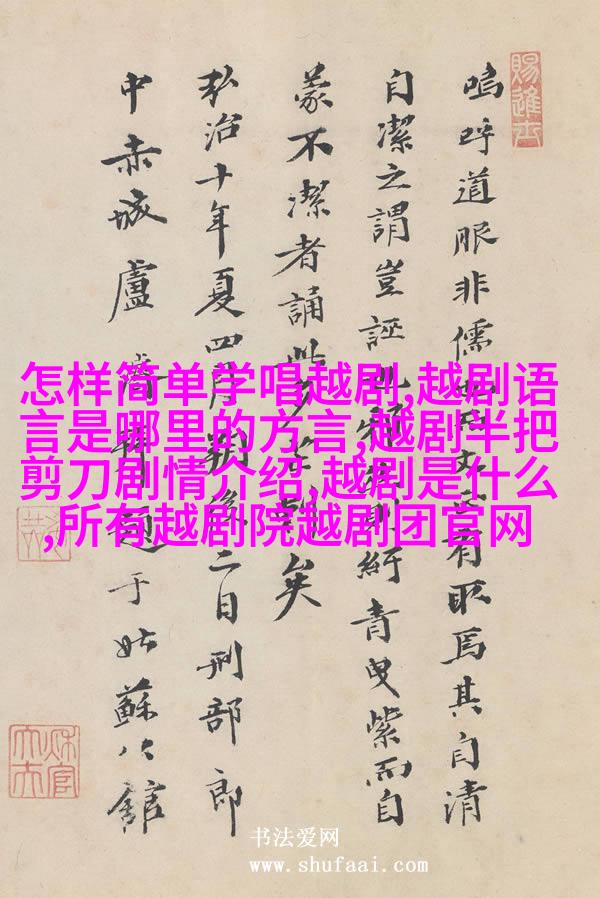 怎样简单学唱越剧,越剧语
言是哪里的方言,越剧半把
剪刀剧情介绍,越剧是什么
,所有越剧院越剧团官网
賜進士
嗚呼道眼非儒文有取焉其自清
自潔之謂豈誣也則紆青曳紫而自
蒙不潔者誦此矣
弘治十年夏四月朔後二日刑部郎
中赤城盧濬題于姑蘇公館
书法爱网
www.shufaai.com